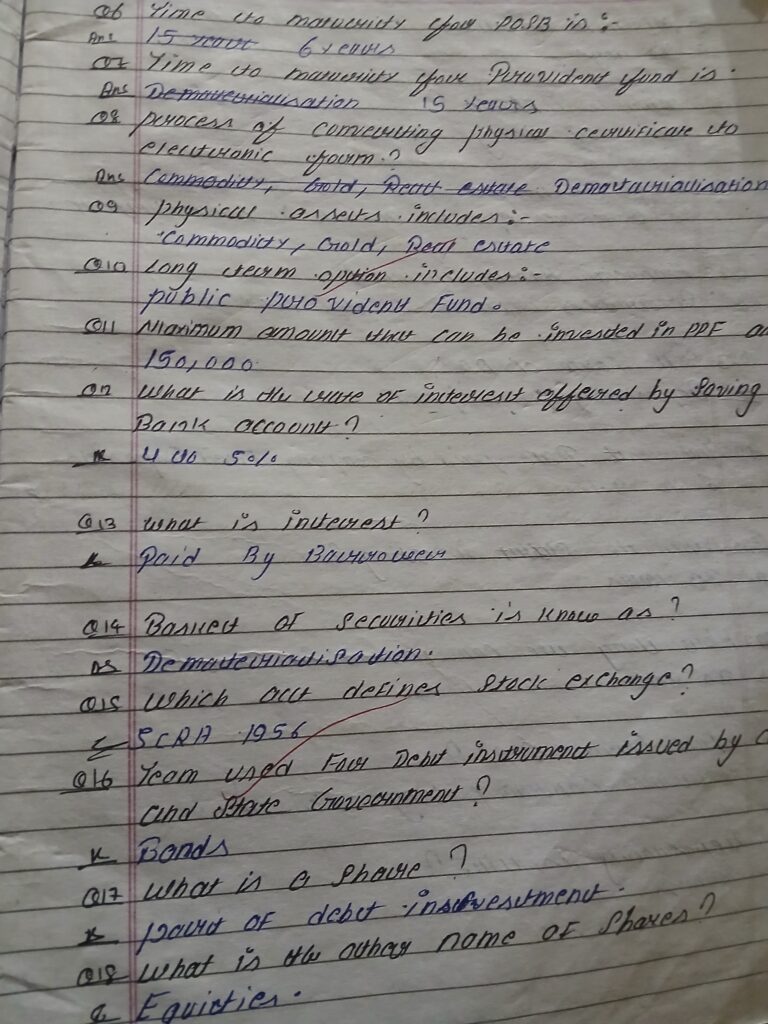 Q6 Time to maturity for POSB is :-
Ans 15 years 6 years
Q7 Time to maturity for Provident fund is.
Ans Dematerialisation 15 years
Q8 process of converting physical certificate to
electronic form.?
Ans Commodity, Gold, Real estate Dematerialisation
Q9 physical assets includes:-
Commodity, Gold, Real estate
Q10 Long term option includes:-
public provident Fund.
Q11 Maximum amount that can be invested in PPF
150,000
What is the rate of interest offered by Saving
Bank account?
4 to 5%
Q13 what is interest?
Paid By Barrower
Q14 Basket of Securities is know as?
Dematerialisation.
Q15 Which act defines Stock exchange?
SCRA 1956
Q16 Team used For Debt instrument issued by
and State Government?
Bonds
Q17 What is a share?
part of debt
Q18 What is the other name of Shares?
Equities.